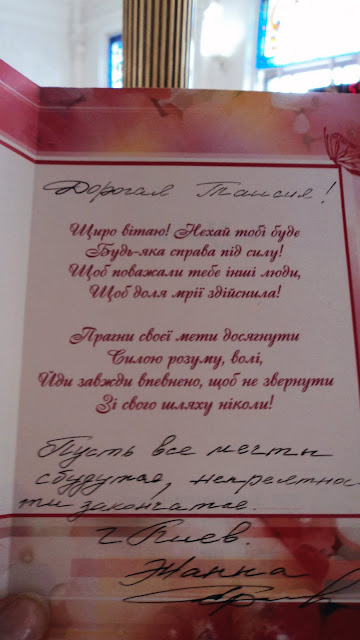 Дорогая Таисия!
Щиро вітаю! Нехай тобі буде
Будь-яка справа під силу!
Щоб поважали тебе інші люди,
Щоб доля мрії здійснила!
Прагни своєї мети досягнути
Силою розуму, волі,
Йди завжди впевнено, щоб не звернути
Зі свого шляху ніколи!
Пусть все мечты
сбудутся, неприятнос
ти закончатся.
г. Киев.
Жанна